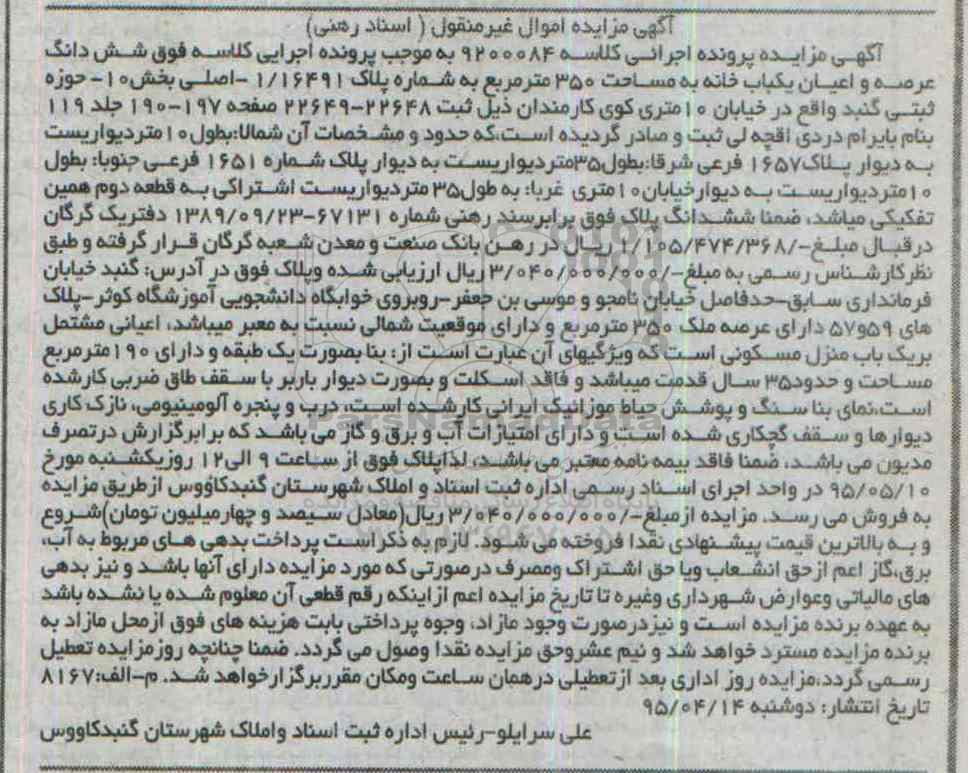 آگهی مزایده اموال غیرمنقول ( اسناد رهنی)
آگهی مزایده پرونده اجرائی کلاسه ۹۲۰۰۰۸۴ به موجب پرونده اجرایی کلاسه فوق شش دانگ
عرصه و اعیان یکباب خانه به مساحت ۳۵۰ مترمربع به شماره پلاک ۱/۱۶۴۹۱ -اصلی بخش۱۰- حوزه
ثبتی گنبد واقع در خیابان ۱۰متری کوی کارمندان ذیل ثبت ۲۲۶۴۸-۲۲۶۴۹ صفحه ۱۹۷-۱۹۰ جلد ۱۱۹
بنام بایرام دردی اقچه لی ثبت و صادر گردیده است،که حدود و مشخصات آن شمالا:بطول۱۰متردیواریست
به دیوار پلاک۱۶۵۷ فرعی شرقا:بطول۳۵متر دیواریست به دیوار پلاک شماره ۱۶۵۱ فرعی جنوبا: بطول
۱۰متردیواریست به دیوارخیابان۱۰متری غربا: به طول۳۵ متردیواریست اشتراکی به قطعه دوم همین
تفکیکی میاشد، ضمنا ششدانگ پلاک فوق برابرسند رهنی شماره ۶۷۱۳۱-۱۳۸۹/۰۹/۲۳ دفتریک گرگان
درقبال مبلغ-/۱/۱۰۵/۴۷۴/۳۶۸ ریال در رهن بانک صنعت و معدن شعبه گرگان قرار گرفته و طبق
نظرکارشناس رسمی به مبلغ-/۳/۰۴۰/۰۰۰/۰۰۰ ریال ارزیابی شده وپلاک فوق در آدرس: گنبد خیابان
فرمانداری سابق-حدفاصل خیابان نامجو و موسی بن جعفر-روبروی خوابگاه دانشجویی آموزشگاه کوثر-پلاک
های ۵۹و۵۷ دارای عرصه ملک ۳۵۰ مترمربع و دارای موقعیت شمالی نسبت به معبر میباشد، اعیانی مشتمل
بریک باب منزل مسکونی است که ویژگیهای آن عبارت است از: بنا بصورت یک طبقه و دارای ۱۹۰مترمربع
مساحت و حدود۳۵ سال قدمت میباشد و فاقد اسکلت و بصورت دیوار باربر با سقف طاق ضربی کارشده
است،نمای بنا سنگ و پوشش حیاط موزائیک ایرانی کارشده است، درب و پنجره آلومینیومی، نازک کاری
دیوارها و سقف گچکاری شده است و دارای امتیازات آب و برق و گاز می باشد که برابرگزارش درتصرف
مدیون می باشد، ضمنا فاقد بیمه نامه معتبر می باشد، لذاپلاک فوق از ساعت ۹ الی۱۲ روزیکشنبه مورخ
۹۵/۰۵/۱۰ در واحد اجرای اسناد رسمی اداره ثبت اسناد و املاک شهرستان گنبدکاووس ازطریق مزایده
به فروش می رسد. مزایده ازمبلغ-/۳/۰۴۰/۰۰۰/۰۰۰ ریال(معادل سیصد و چهارمیلیون تومان)شروع
و به بالاترین قیمت پیشنهادی نقدا فروخته می شود. لازم به ذکراست پرداخت بدهی های مربوط به آب،
برق،گاز اعم ازحق انشعاب ویا حق اشتراک ومصرف درصورتی که مورد مزایده دارای آنها باشد و نیز بدهی
های مالیاتی وعوارض شهرداری وغیره تا تاریخ مزایده اعم ازاینکه رقم قطعی آن معلوم شده یا نشده باشد
به عهده برنده مزایده است و نیز درصورت وجود مازاد، وجوه پرداختی بابت هزینه های فوق ازمحل مازاد به
برنده مزایده مسترد خواهد شد و نیم عشروحق مزایده نقدا وصول می گردد. ضمنا چنانچه روزمزایده تعطیل
رسمی گردد،مزایده روز اداری بعد ازتعطیلی درهمان ساعت ومکان مقرربرگزارخواهد شد. م-الف:۸۱۶۷
تاریخ انتشار: دوشنبه ۹۵/۰۴/۱۴
علی سرایلو-رئیس اداره ثبت اسناد واملاک شهرستان گنبدکاووس
ParsNamadData